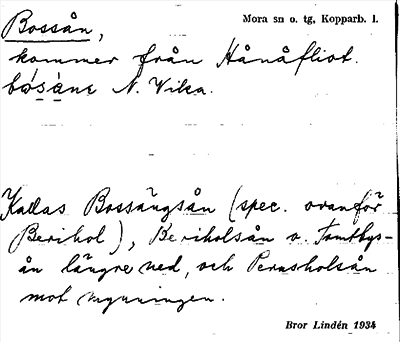 Bossån,
Mora sn o. tg, Kopparb. l.
kommer från Hånåfliot.
bósànɛ N. Vika.
Kallas Bossängsån (spec. ovanför
Berihol), Beriholsån o. Tomtbys-
ån längre ned, och Pernsholsån
mot mynningen.
Bror Lindén 1934